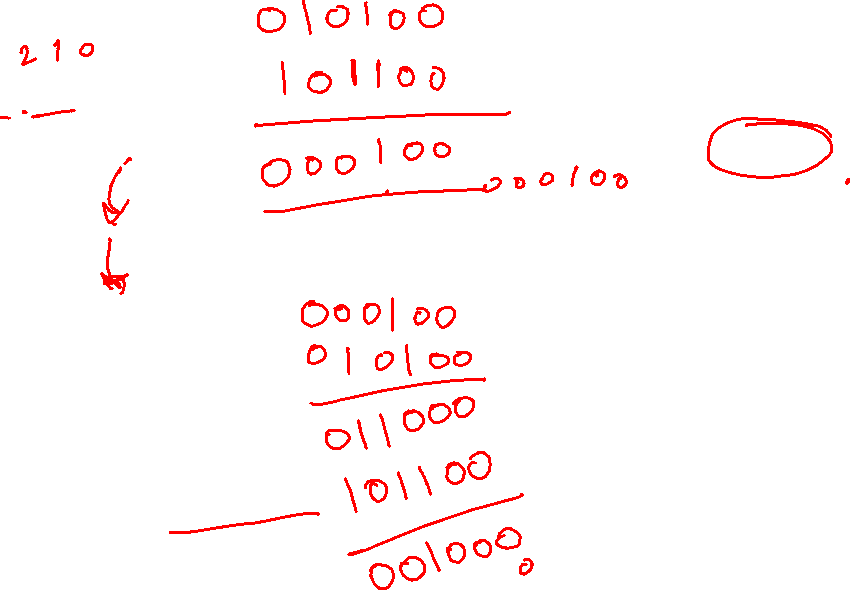 010100
210
101100
000100
000100
000100
010100
011000
101100
001000
0